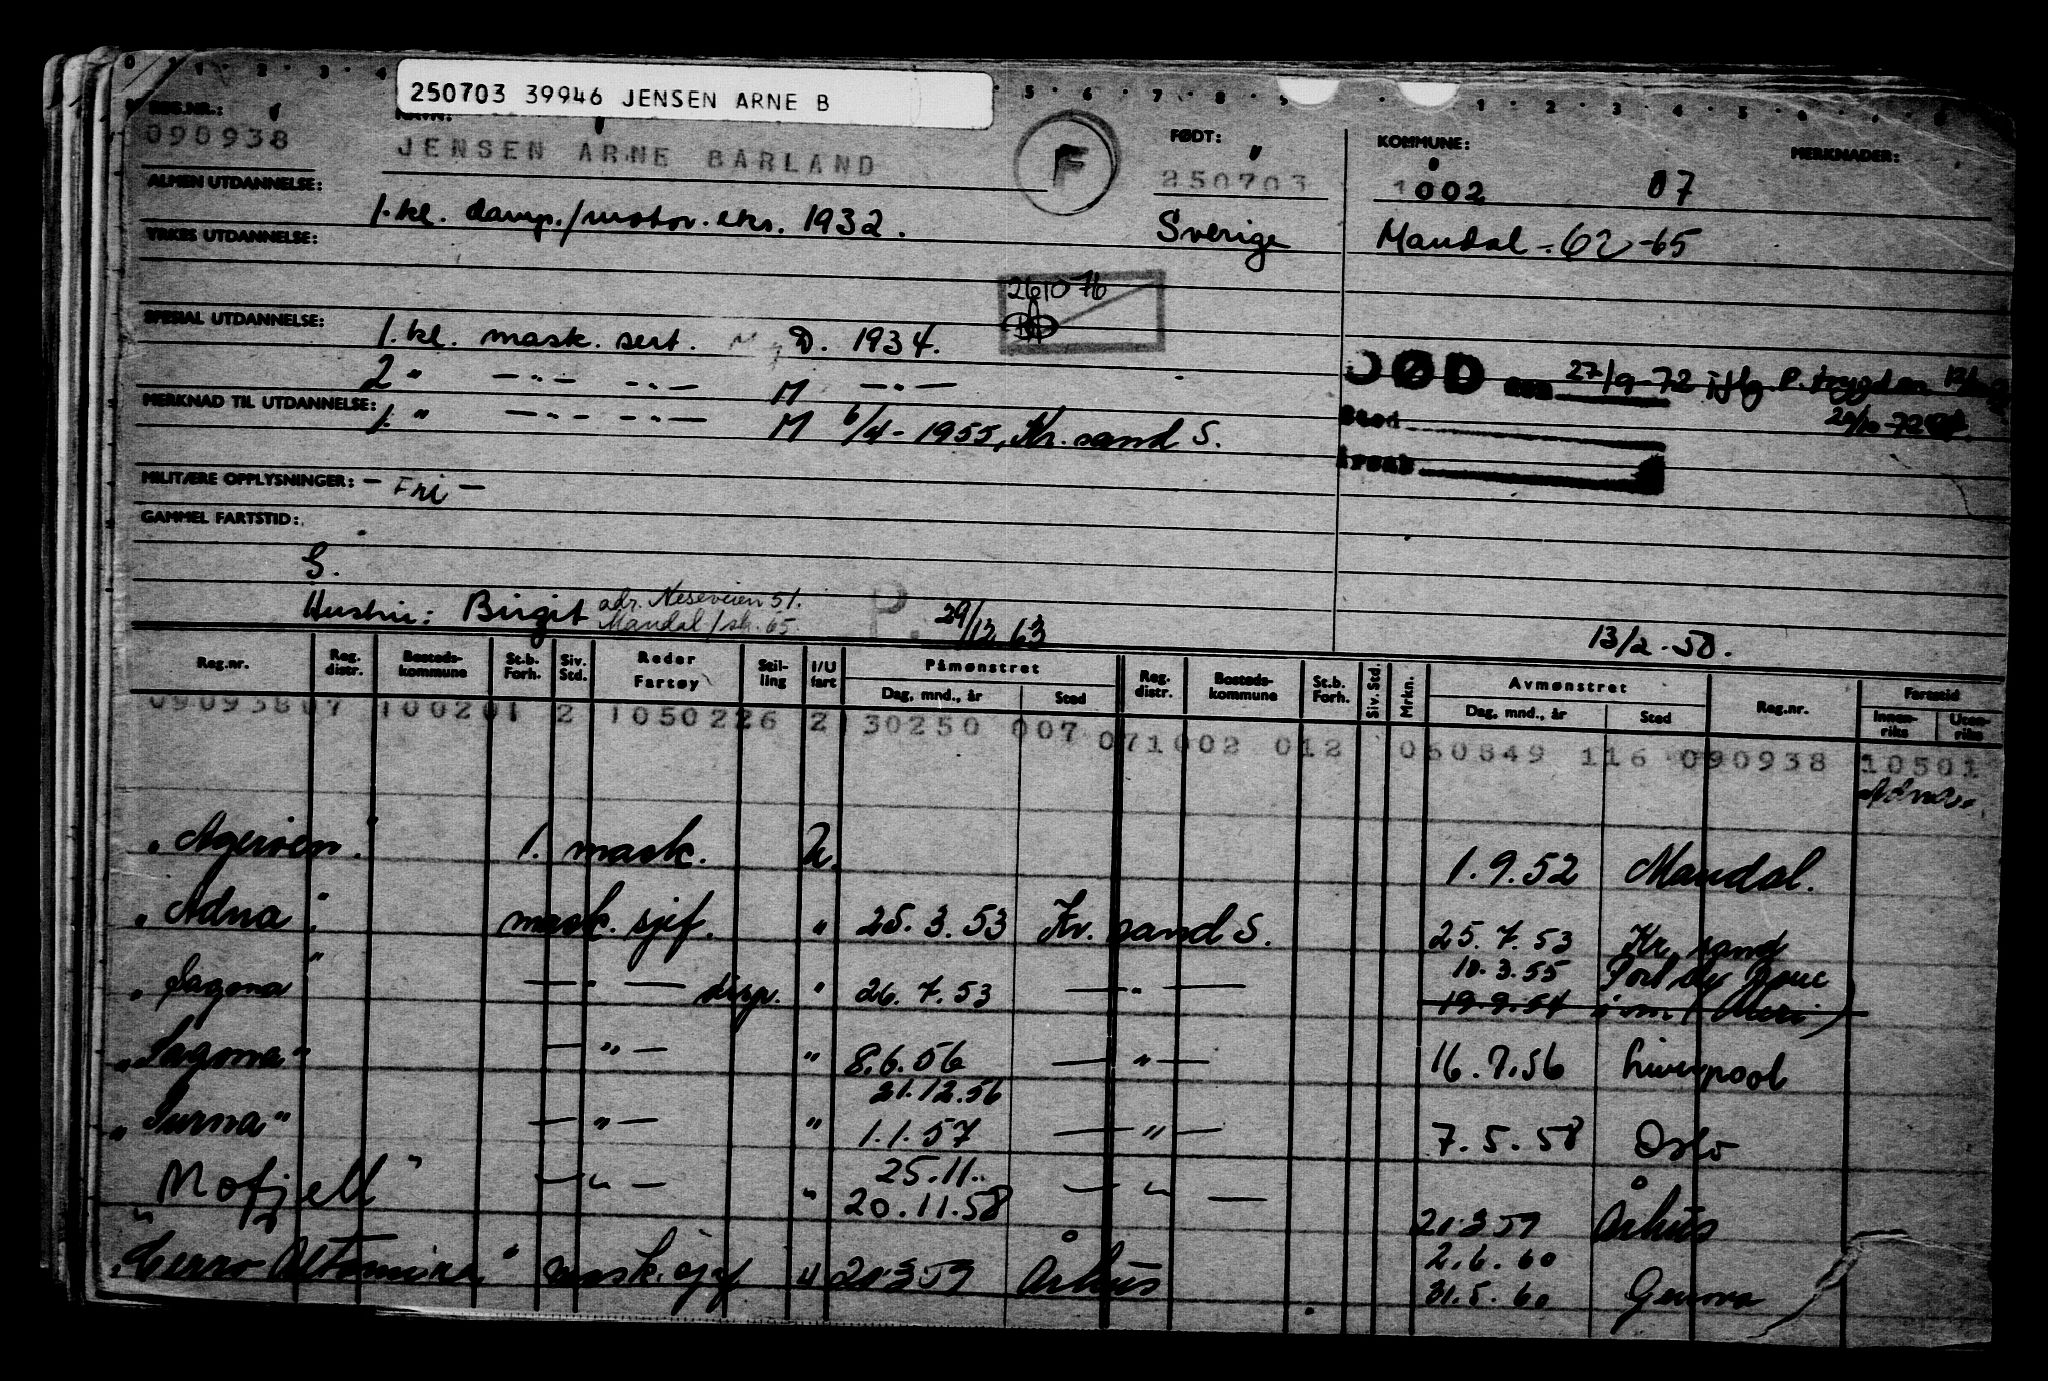 250703 39946 JENSEN ARNE B
REG.NR.: NAVN: FØDT: KOMMUNE: MERKNADER:
090938 JENSEN ARNE BÅRLAND F 250703 1002 07
ALMEN UTDANNELSE: 1. kl. damp./motor. eks. 1932. Sverige Mandal - 62 - 65
YRKES UTDANNELSE:
261076
SPESIAL UTDANNELSE: 1. kl. mask. sert. D. 1934.
DØD 27/9-72 iflg. R.trygden
2 " — " — — " — M — " —
20/10-72
MERKNAD TIL UTDANNELSE: 1. " — " — — " — M 6/4 - 1955, Kr.sand S.
Sted
Årsak
MILITÆRE OPPLYSNINGER: - Fri -
GAMMEL FARTSTID:
G.
Hustru: Birgit adr. Neseveien 51. Mandal/sk. 65. P. 29/12 63 13/2 - 50.
Reg.nr. Reg. distr. Bosteds-kommune St.b. Forh. Siv. Std. Reder Fartøy Stil-ling I/U fart Påmønstret Dag, mnd., år Sted Reg. distr. Bosteds-kommune St.b. Forh. Siv. Std. Mrkn. Avmønstret Dag, mnd., år Sted Reg.nr. Fartstid Innen-riks Uten-riks
09093807 100201 2 1050226 2 130250 007 071002 012 060849 116 090938 10501
" Agerøen " 1. mask. U. 1.9.52 Mandal.
" Adna " mask. sjef. " 25.3.53 Kr. sand S. 25.7.53 Kr. sand
" Sagoma " — " — disp. " 26.7.53 — " — 10.3.55 Port de Bouc
19.9.54
" Sagoma " — " — " 8.6.56 — " — 16.7.56 Liverpool
21.12.56
" Surna " — " — " 1.1.57 — " — 7.5.58 Oslo
25.11.
" Mofjell " — " — " 20.11.58 — " — 21.3.59 Århus
2.6.60
" Cerro Altamira " mask. sjef " 21.3.59 Århus 31.5.60 Genova